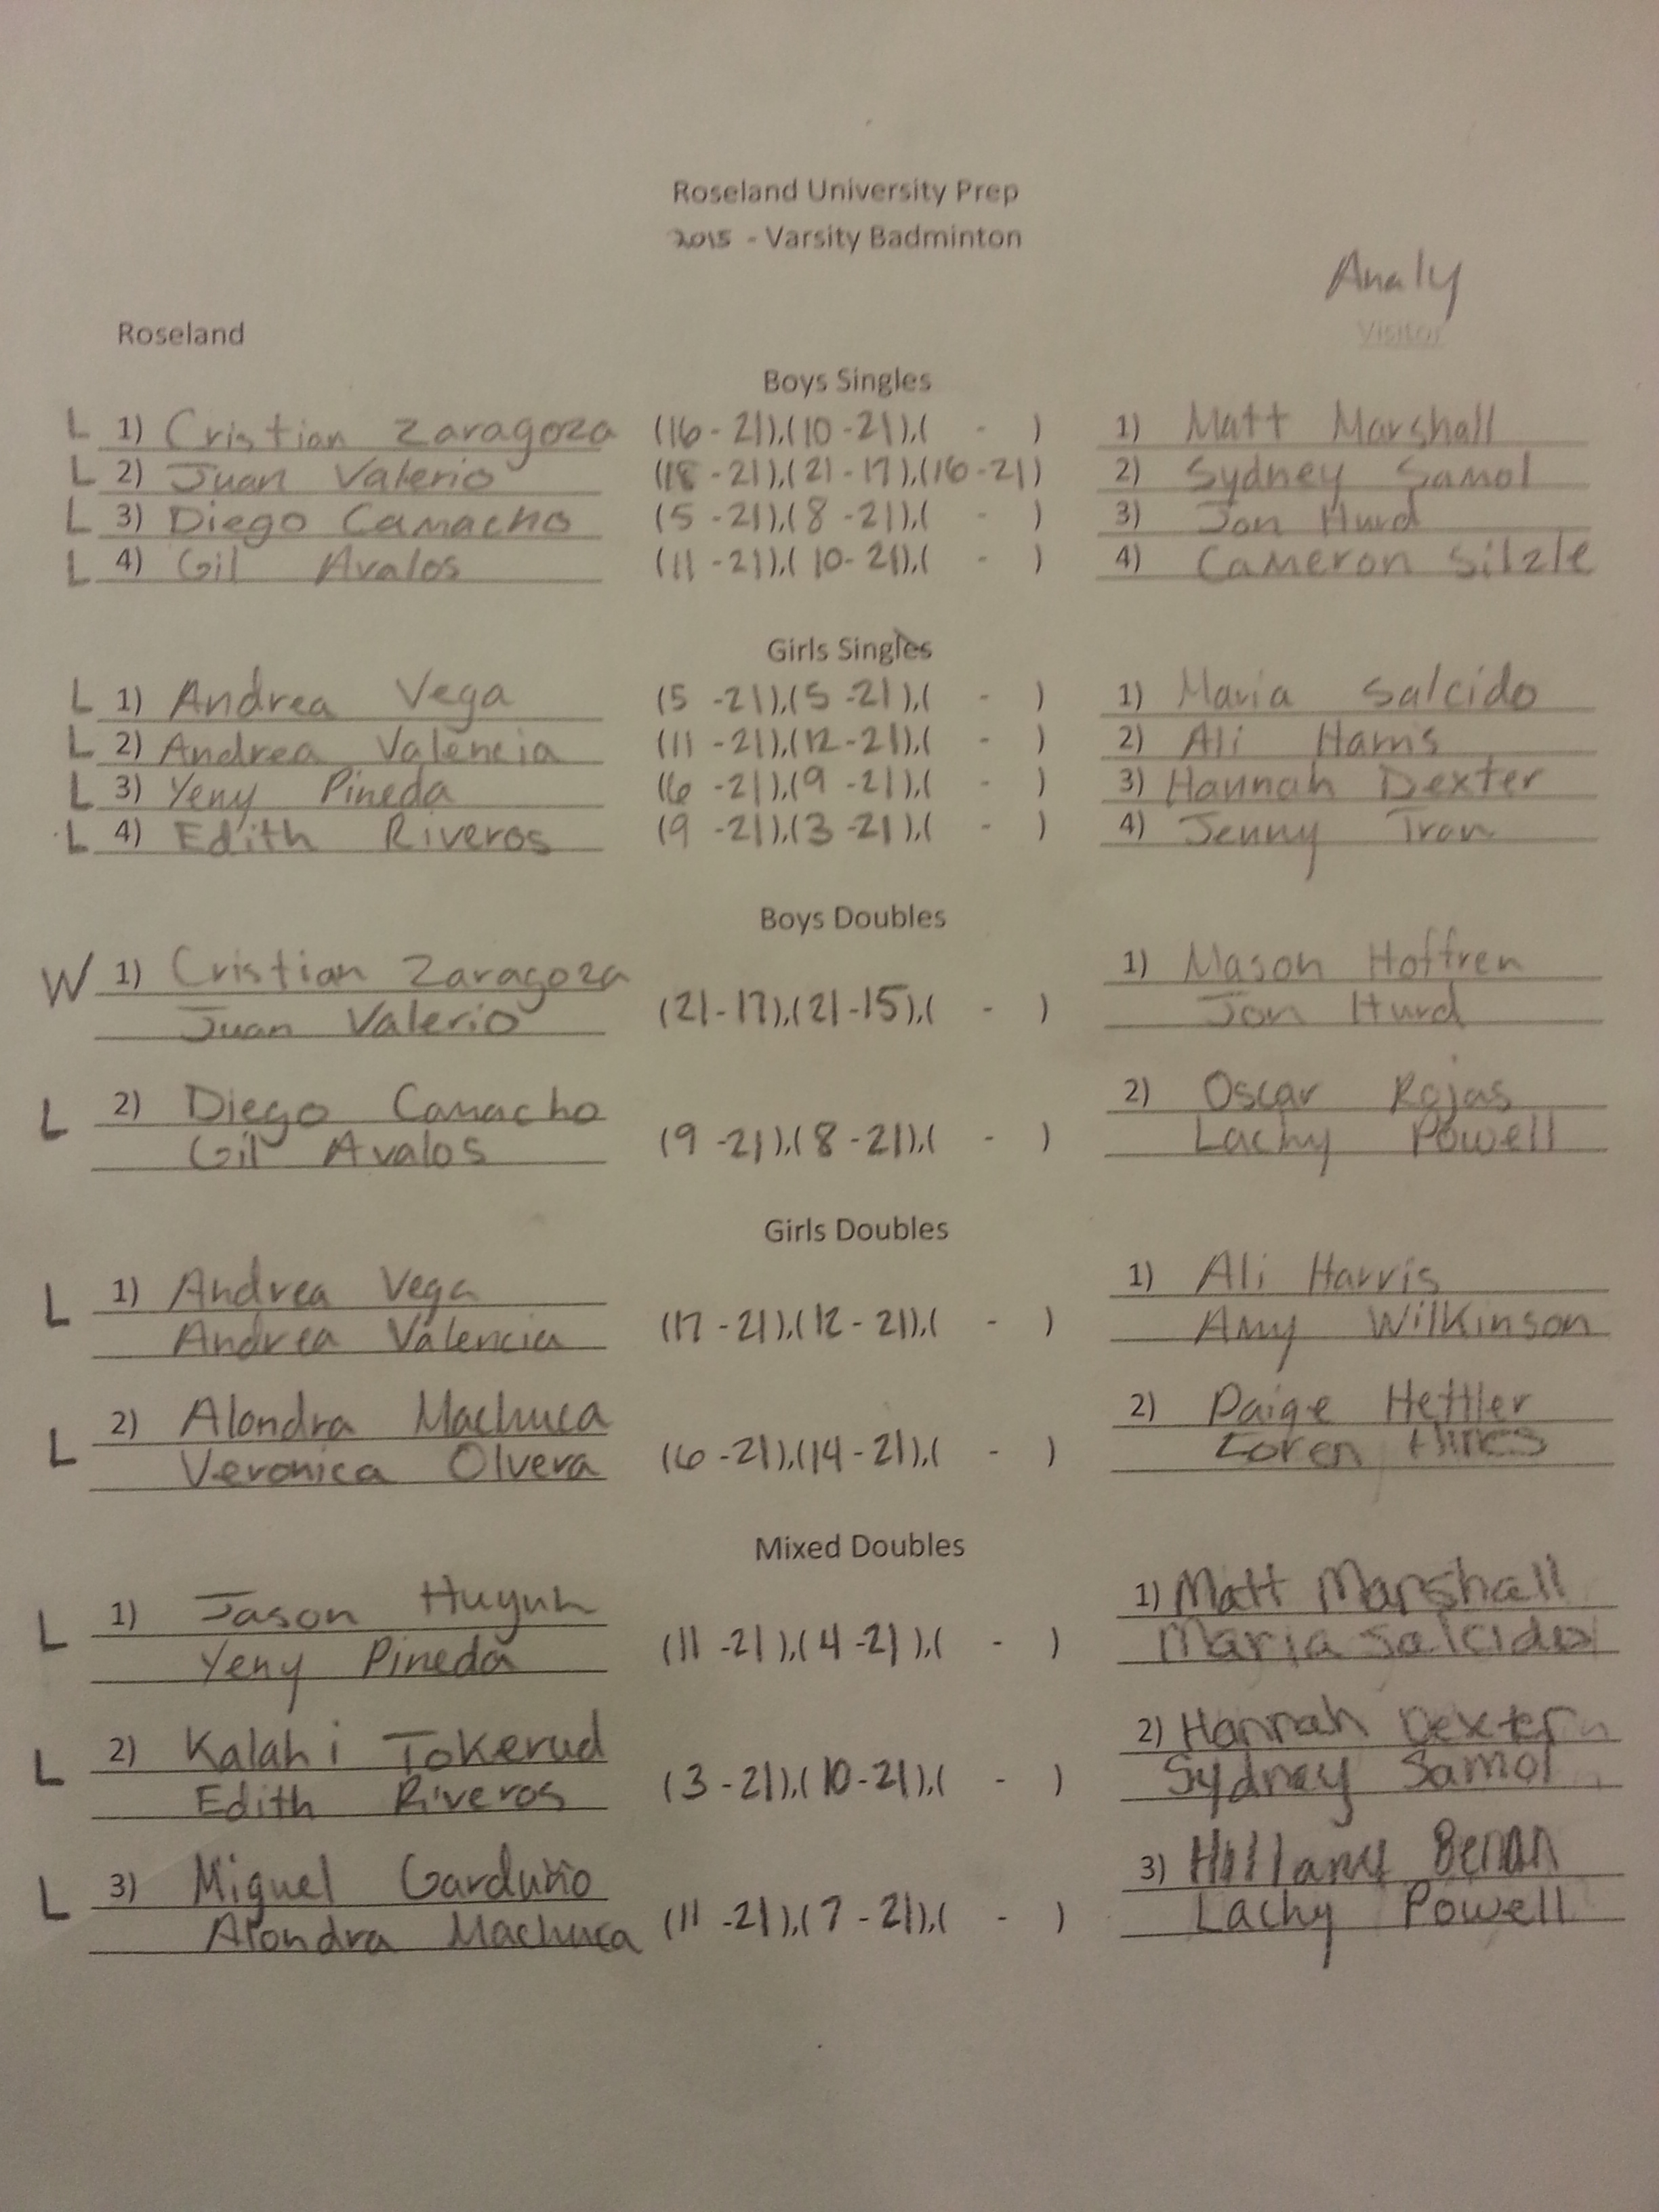 Roseland University Prep
2015 - Varsity Badminton
Analy
Roseland
Visitor
Boys Singles
L 1) Cristian Zaragoza (16 - 21),(10 - 21),( - ) 1) Matt Marshall
L 2) Juan Valerio (18 - 21),(21 - 17),(16 - 21) 2) Sydney Samol
L 3) Diego Camacho (5 - 21),(8 - 21),( - ) 3) Jon Hurd
L 4) Gil Avalos (11 - 21),(10 - 21),( - ) 4) Cameron Silzle
Girls Singles
L 1) Andrea Vega (5 - 21),(5 - 21),( - ) 1) Maria Salcido
L 2) Andrea Valencia (11 - 21),(12 - 21),( - ) 2) Ali Harris
L 3) Yeny Pineda (6 - 21),(9 - 21),( - ) 3) Hannah Dexter
L 4) Edith Riveros (9 - 21),(3 - 21),( - ) 4) Jenny Tran
Boys Doubles
W 1) Cristian Zaragoza 1) Mason Hoffren
Juan Valerio (21 - 17),(21 - 15),( - ) Jon Hurd
L 2) Diego Camacho 2) Oscar Rojas
Gil Avalos (9 - 21),(8 - 21),( - ) Lachy Powell
Girls Doubles
L 1) Andrea Vega 1) Ali Harris
Andrea Valencia (17 - 21),(12 - 21),( - ) Amy Wilkinson
L 2) Alondra Machuca 2) Paige Hettler
Veronica Olvera (6 - 21),(14 - 21),( - ) Loren Hines
Mixed Doubles
L 1) Jason Huynh 1) Matt Marshall
Yeny Pineda (11 - 21),(4 - 21),( - ) Maria Salcido
L 2) Kalahi Tokerud 2) Hannah Dexter
Edith Riveros (3 - 21),(10 - 21),( - ) Sydney Samol
L 3) Miguel Garduño 3)
Alondra Machuca (11 - 21),(7 - 21),( - ) Lachy Powell